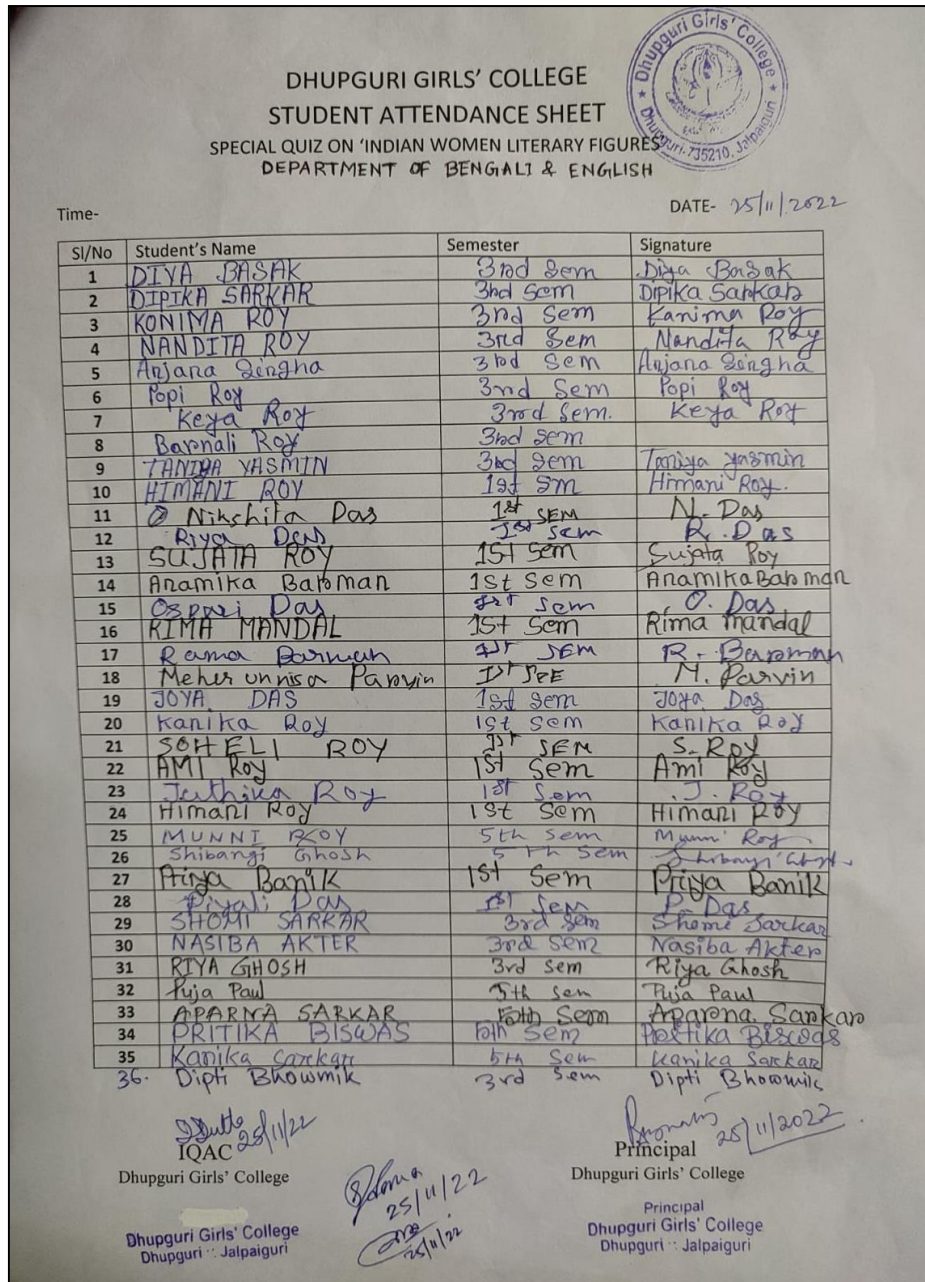 Dhupguri Girls' College
Dhupguri-735210, Jalpaiguri
DHUPGURI GIRLS' COLLEGE
STUDENT ATTENDANCE SHEET
SPECIAL QUIZ ON 'INDIAN WOMEN LITERARY FIGURES'
DEPARTMENT OF BENGALI & ENGLISH
Time- DATE- 25/11/2022
Sl/No Student's Name Semester Signature
1 DIYA BASAK 3rd Sem Diya Basak
2 DIPIKA SARKAR 3rd Sem Dipika Sarkar
3 KONIMA ROY 3rd Sem Kanima Roy
4 NANDITA ROY 3rd Sem Nandita Roy
5 Anjana Singha 3rd Sem Anjana Singha
6 Popi Roy 3rd Sem Popi Roy
7 Keya Roy 3rd Sem. Keya Roy
8 Barnali Roy 3rd Sem
9 TANIYA YASMIN 3rd Sem Taniya Yasmin
10 HIMANI ROY 1st Sm Himani Roy.
11 Nikshita Das 1st SEM N. Das
12 Riya Das 1st Sem R. Das
13 SUJATA ROY 1St Sem Sujata Roy
14 Anamika Barman 1st Sem Anamika Barman
15 Das 1st Sem O. Das
16 RIMA MANDAL 1St Sem Rima Mandal
17 Rama Barman 1st SEM R. Barman
18 Meher unnisa Parvin Ist M. Parvin
19 JOYA DAS 1st Sem Joya Das
20 Kanika Roy 1st Sem Kanika Roy
21 SOHELI ROY 1st SEM S. Roy
22 AMI Roy 1St Sem Ami Roy
23 Juthika Roy 1st Sem J. Roy
24 Himani Roy 1st Sem Himani Roy
25 MUNNI ROY 5th Sem Munni Roy
26 Shibangi Ghosh 5th Sem Shibangi Ghosh
27 Priya Banik 1St Sem Priya Banik
28 Piyali Das 1st Sem P. Das
29 SHOMI SARKAR 3rd Sem Shomi Sarkar
30 NASIBA AKTER 3rd Sem Nasiba Akter
31 RIYA GHOSH 3rd Sem Riya Ghosh
32 Puja Paul 5th Sem Puja Paul
33 APARNA SARKAR 5th Sem Aparna Sarkar
34 PRITIKA BISWAS 5th Sem Pritika Biswas
35 Kanika Sarkar 5th Sem Kanika Sarkar
36. Dipti Bhowmik 3rd Sem Dipti Bhowmik
25/11/22 25/11/2022
IQAC Principal
Dhupguri Girls' College Dhupguri Girls' College
25/11/22
25/11/22
Principal
Dhupguri Girls' College Dhupguri Girls' College
Dhupguri :: Jalpaiguri Dhupguri :: Jalpaiguri